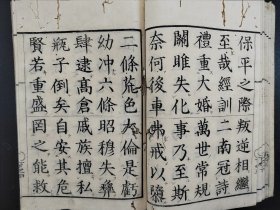 保平之際叛逆相繼
至哉經訓二南冠詩
禮重大婚萬世常規
關雎失化事乃至斯
奈何後車弗戒以驕
二條荒色大倫是虧
幼冲六條昭穆失彝
肆逮高倉戚族擅私
瓶子倒矣自安其危
賢若重盛罔之能救